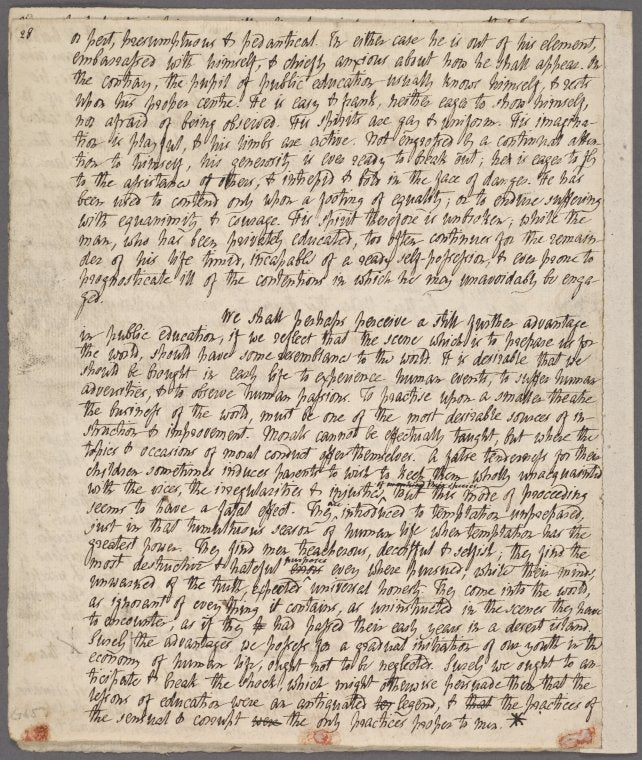 28
or pert, presumptuous & pedantical. In either case he is out of his element,
embarrassed with himself, & chiefly anxious about how he shall appear. On
the contrary, the pupil of public education usually knows himself, & rests
upon his proper centre. He is easy & frank, neither eager to show himself,
nor afraid of being observed. His spirits are gay & uniform. His imagina-
tion is playful, & his limbs are active. Not engrossed by a continual atten-
tion to himself, his generosity is ever ready to break out; he is eager to fly
to the assistance of others, & intrepid & bold in the face of danger. He has
been used to contend only upon a footing of equality; or to endure suffering
with equanimity & courage. His spirit therefore is unbroken; while the
man, who has been privately educated, too often continues for the remain-
der of his life timid, incapable of a ready self-possession, & ever prone to
prognosticate ill of the contentions in which he may unavoidably be enga-
ged.
We shall perhaps perceive a still further advantage
in public education, if we reflect that the scene which is to prepare us for
the world, should have some resemblance to the world. It is desirable that we
should be brought in early life to experience human events, to suffer human
adversities, & to observe human passions. To practise upon a smaller theatre
the business of the world, must be one of the most desirable sources of in-
struction & improvement. Morals cannot be effectually taught, but where the
topics & occasions of moral conduct offer themselves. A false tenderness for their
children sometimes induces parents to wish to keep them wholly unacquainted
with the vices, the irregularities & injustice of mankind their species. But this mode of proceeding
seems to have a fatal effect. They are introduced to temptation unprepared,
just in that tumultuous season of human life when temptation has the
greatest power. They find men treacherous, deceitful & selfish; they find the
most destructive & hateful purposes every where pursued, while their minds,
unwarned of the truth, expected universal honesty. They come into the world,
as ignorant of every thing it contains, as uninstructed in the scenes they have
to encounter, as if they had passed their early years in a desert island.
Surely the advantages we possess for a gradual initiation of our youth in the
economy of human life, ought not to be neglected. Surely we ought to an-
ticipate & break the shock, which might otherwise persuade them that the
lessons of education were an antiquated legend, & that the practices of
the sensual & corrupt were the only practices proper to men. *